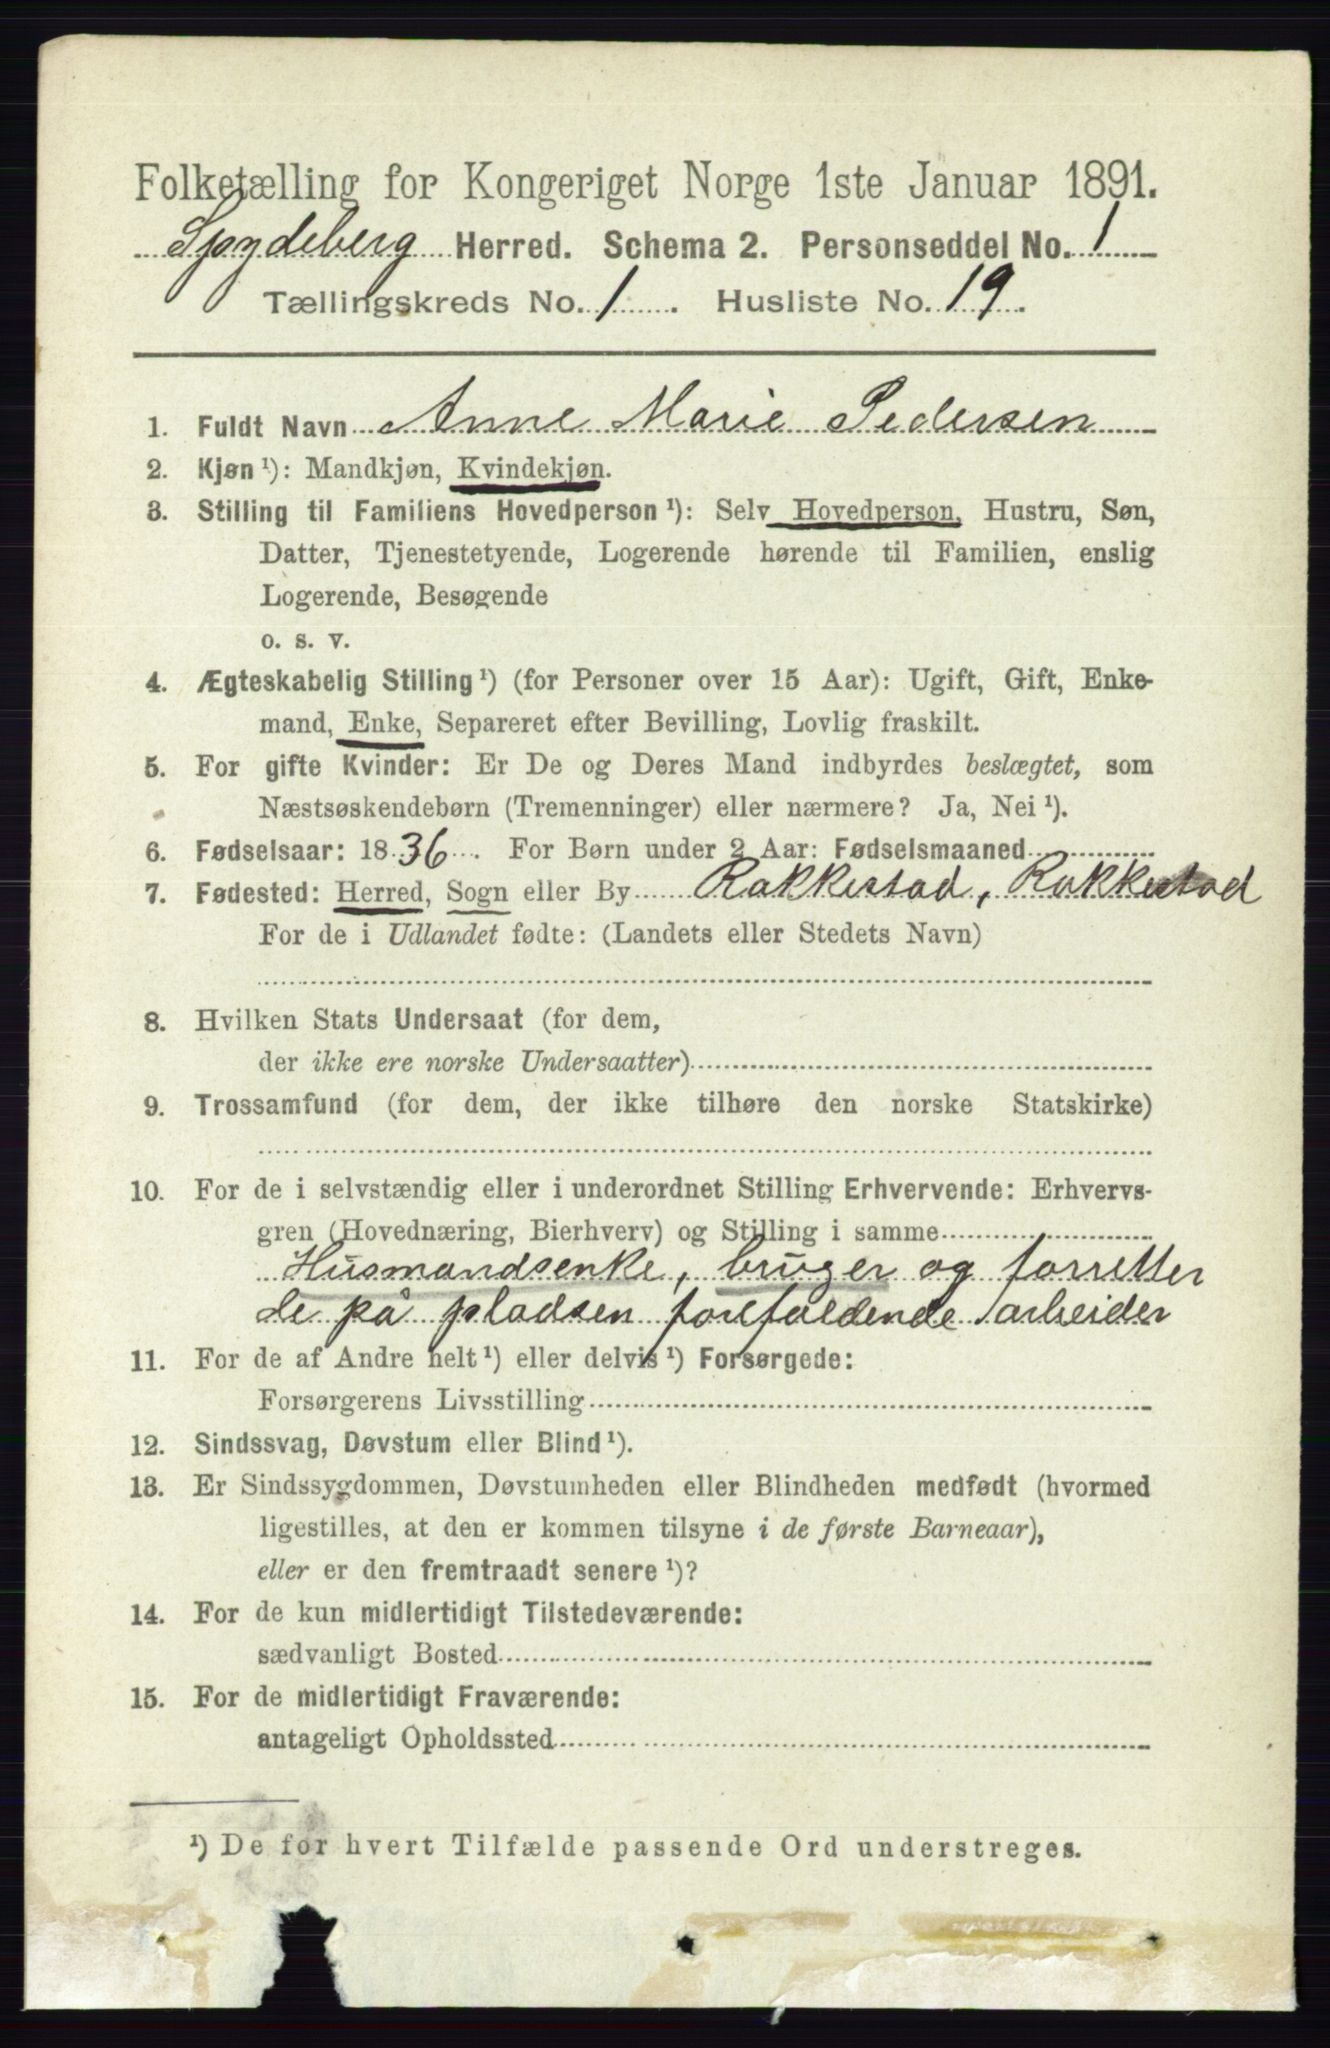 Folketælling for Kongeriget Norge 1ste Januar 1891.
Spydeberg Herred. Schema 2. Personseddel No. 1
Tællingskreds No. 1. Husliste No. 19.
1. Fuldt Navn Anne Marie Pedersen
2. Kjøn ¹): Mandkjøn, Kvindekjøn.
3. Stilling til Familiens Hovedperson ¹): Selv Hovedperson, Hustru, Søn,
Datter, Tjenestetyende, Logerende hørende til Familien, enslig
Logerende, Besøgende
o. s. v.
4. Ægteskabelig Stilling ¹) (for Personer over 15 Aar): Ugift, Gift, Enke-
mand, Enke, Separeret efter Bevilling, Lovlig fraskilt.
5. For gifte Kvinder: Er De og Deres Mand indbyrdes beslægtet, som
Næstsøskendebørn (Tremenninger) eller nærmere? Ja, Nei ¹).
6. Fødselsaar: 1836. For Børn under 2 Aar: Fødselsmaaned
7. Fødested: Herred, Sogn eller By Rakkestad, Rakkestad
For de i Udlandet fødte: (Landets eller Stedets Navn)
8. Hvilken Stats Undersaat (for dem,
der ikke ere norske Undersaatter)
9. Trossamfund (for dem, der ikke tilhøre den norske Statskirke)
10. For de i selvstændig eller i underordnet Stilling Erhvervende: Erhvervs-
gren (Hovednæring, Bierhverv) og Stilling i samme
Husmandsenke, bruger og forretter
de på pladsen forefaldende arbeider
11. For de af Andre helt ¹) eller delvis ¹) Forsørgede:
Forsørgerens Livsstilling
12. Sindssvag, Døvstum eller Blind ¹).
13. Er Sindssygdommen, Døvstumheden eller Blindheden medfødt (hvormed
ligestilles, at den er kommen tilsyne i de første Barneaar),
eller er den fremtraadt senere ¹)?
14. For de kun midlertidigt Tilstedeværende:
sædvanligt Bosted
15. For de midlertidigt Fraværende:
antageligt Opholdssted
¹) De for hvert Tilfælde passende Ord understreges.